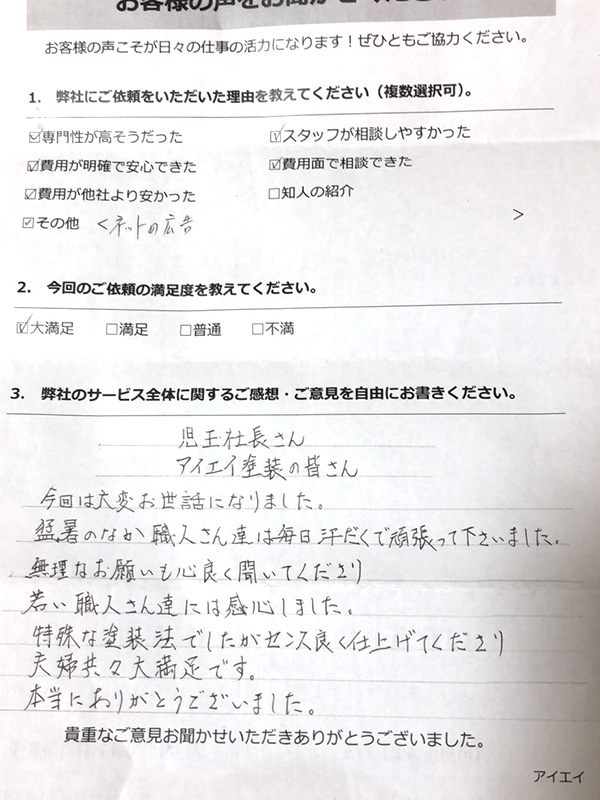 お客様の声をお聞かせ
お客様の声こそが日々の仕事の活力になります！ぜひともご協力ください。
1. 弊社にご依頼をいただいた理由を教えてください（複数選択可）。
☑専門性が高そうだった ☑スタッフが相談しやすかった
☑費用が明確で安心できた ☑費用面で相談できた
☑費用が他社より安かった □知人の紹介
☑その他 ＜ネットの広告 ＞
2. 今回のご依頼の満足度を教えてください。
☑大満足 □満足 □普通 □不満
3. 弊社のサービス全体に関するご感想・ご意見を自由にお書きください。
児玉社長さん
アイエイ塗装の皆さん
今回は大変お世話になりました。
猛暑のなか職人さん達は毎日汗だくで頑張って下さいました。
無理なお願いも心良く聞いてくださり
若い職人さん達には感心しました。
特殊な塗装法でしたがセンス良く仕上げてくださり
夫婦共々大満足です。
本当にありがとうございました。
貴重なご意見お聞かせいただきありがとうございました。
アイエイ